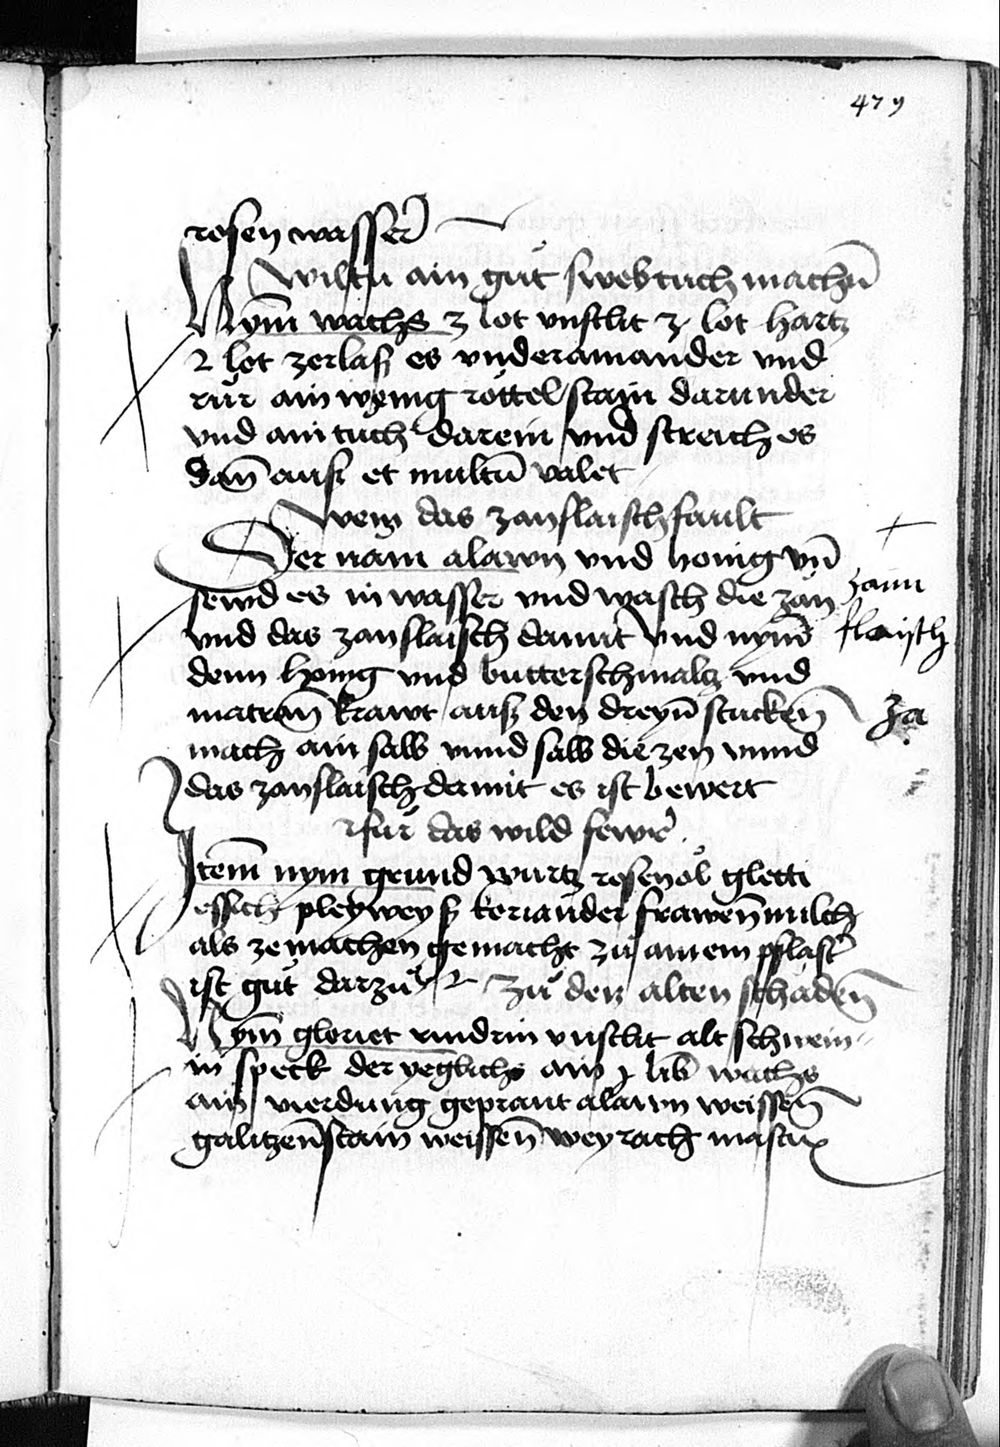 479
rosen wasser
Wiltu ain gůt swebtuch machñ
Nym̄ wachs 3 lot vnslit 3 lot hartz
2 lot zerlaß es vnderainander vnd
růr ain wenig röttelstain darunder
vnd ain tuch darein vnd streich es
dan̄ auß et multū valet
Wem das zanflaisch fault
Der nam alawn vnd honig vn̄
sewd es in wasser vnd wasch die zän
vnd das zanflaisch damit vnd nym̄
denn honig vnd butterschmaltz vnd
matron̄ krawt auß den dreyn̄ stucken̄
mach ain salb vnnd salb die zen vnnd
das zanflaisch damit es ist bewert
zann
flaisch
za
für das wild fewr
Item̄ nym grund wurtz rosenöl gletti
essich pleyweyß koriander frawen̄milch
als ze machen gemacht zů ainem pflast
ist gůt darzů Zů den alten schäden̄
Nym̄ gloriet rindrin vnslit alt schwein
in speck der yeglichs ain lib wachs
ain vierdung geprant alawn weissen̄
galitzen̄stain weissen̄ weyrach mastix